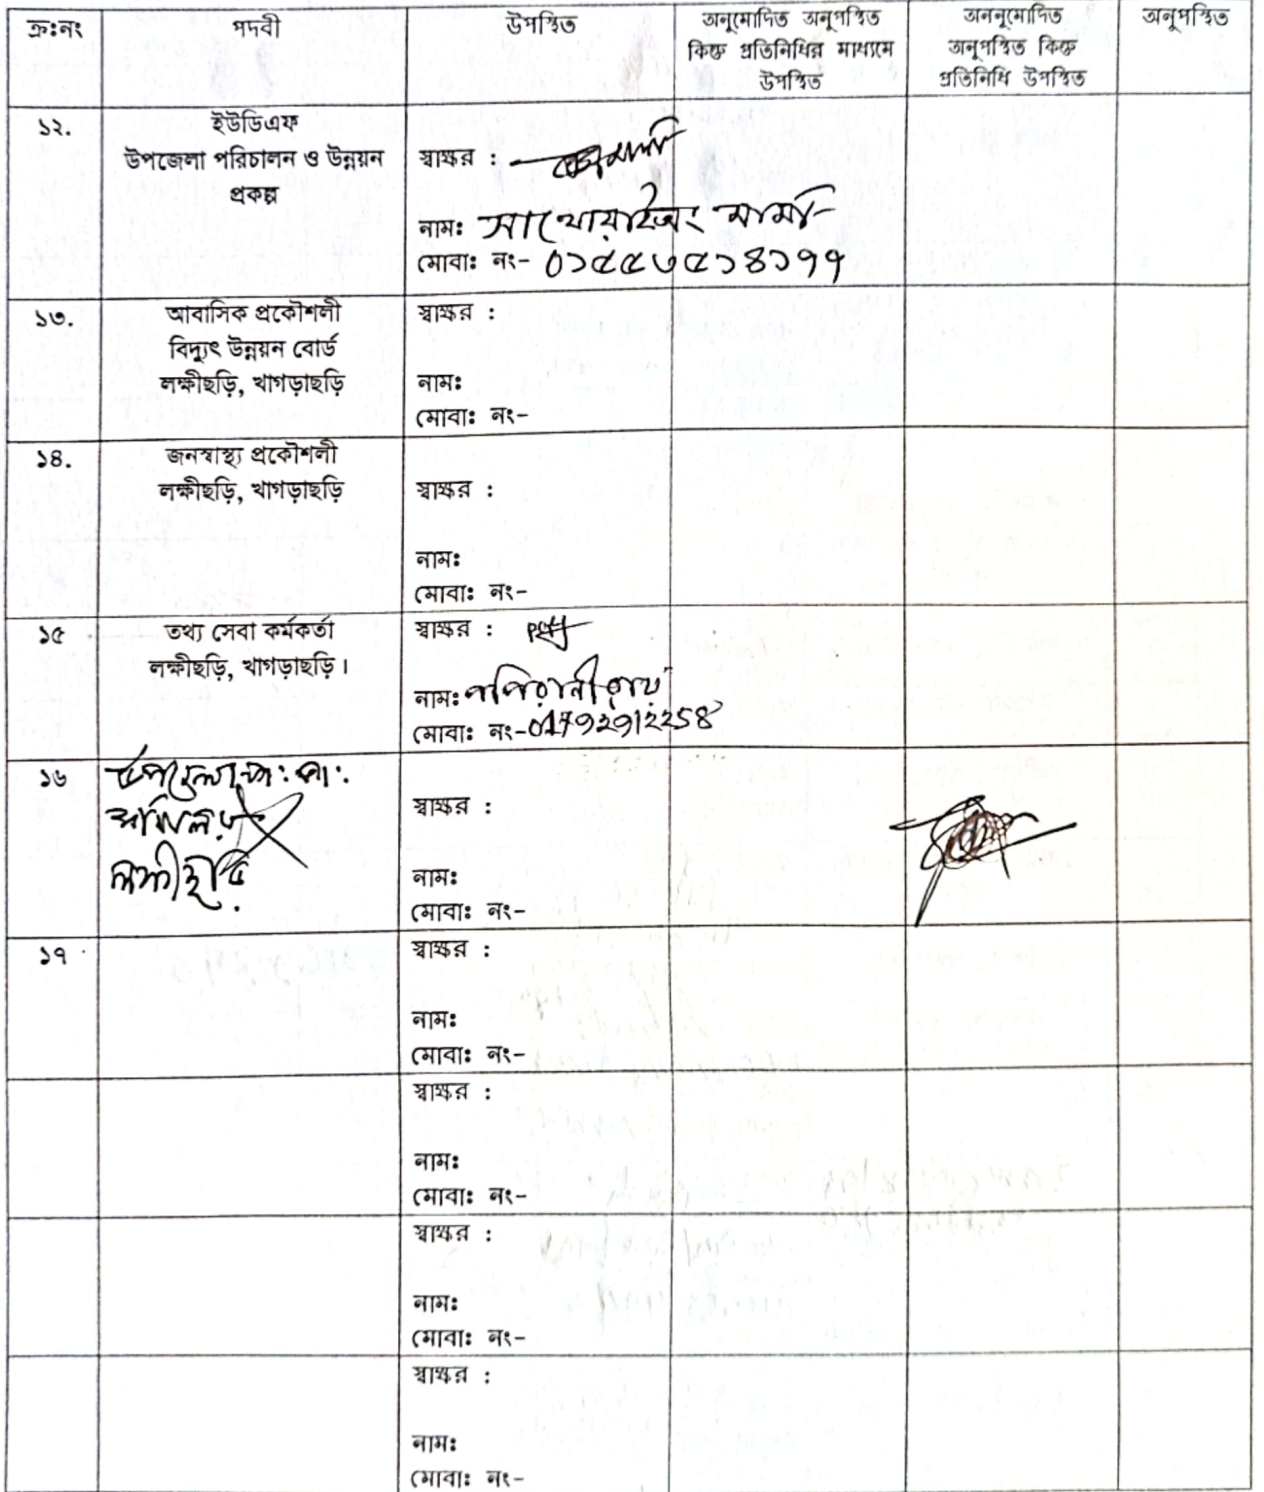 ক্রঃনং
পদবী
উপস্থিত
অনুমোদিত অনুপস্থিত
কিন্তু প্রতিনিধির মাধ্যমে
উপস্থিত
অননুমোদিত
অনুপস্থিত কিন্তু
প্রতিনিধি উপস্থিত
অনুপস্থিত
১২.
ইউডিএফ
উপজেলা পরিচালন ও উন্নয়ন
প্রকল্প
স্বাক্ষর :
নাম: সাথোয়াইঅং মার্মা
মোবাঃ নং- ০১৫৫৩৫১৪১৭৭
১৩.
আবাসিক প্রকৌশলী
বিদ্যুৎ উন্নয়ন বোর্ড
লক্ষীছড়ি, খাগড়াছড়ি
স্বাক্ষর :
নাম:
মোবাঃ নং-
১৪.
জনস্বাস্থ্য প্রকৌশলী
লক্ষীছড়ি, খাগড়াছড়ি
স্বাক্ষর :
নাম:
মোবাঃ নং-
১৫
তথ্য সেবা কর্মকর্তা
লক্ষীছড়ি, খাগড়াছড়ি।
স্বাক্ষর :
নাম: পপি রানী রায়
মোবাঃ নং-01792912258
১৬
উপজেলা প: প:
লক্ষীছড়ি
স্বাক্ষর :
নাম:
মোবাঃ নং-
১৭
স্বাক্ষর :
নাম:
মোবাঃ নং-
স্বাক্ষর :
নাম:
মোবাঃ নং-
স্বাক্ষর :
নাম:
মোবাঃ নং-
স্বাক্ষর :
নাম:
মোবাঃ নং-